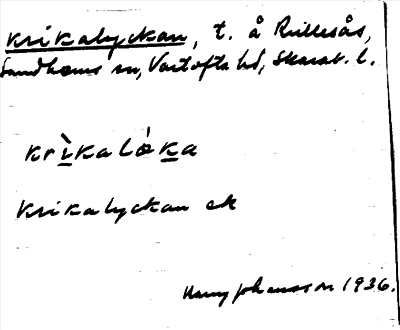 Krikalyckan, t. å Rillesås,
Sandhems sn, Vartofta hd, Skarab. l.
krìkalóka
Krikalyckan ek
Harry Johansson 1936.